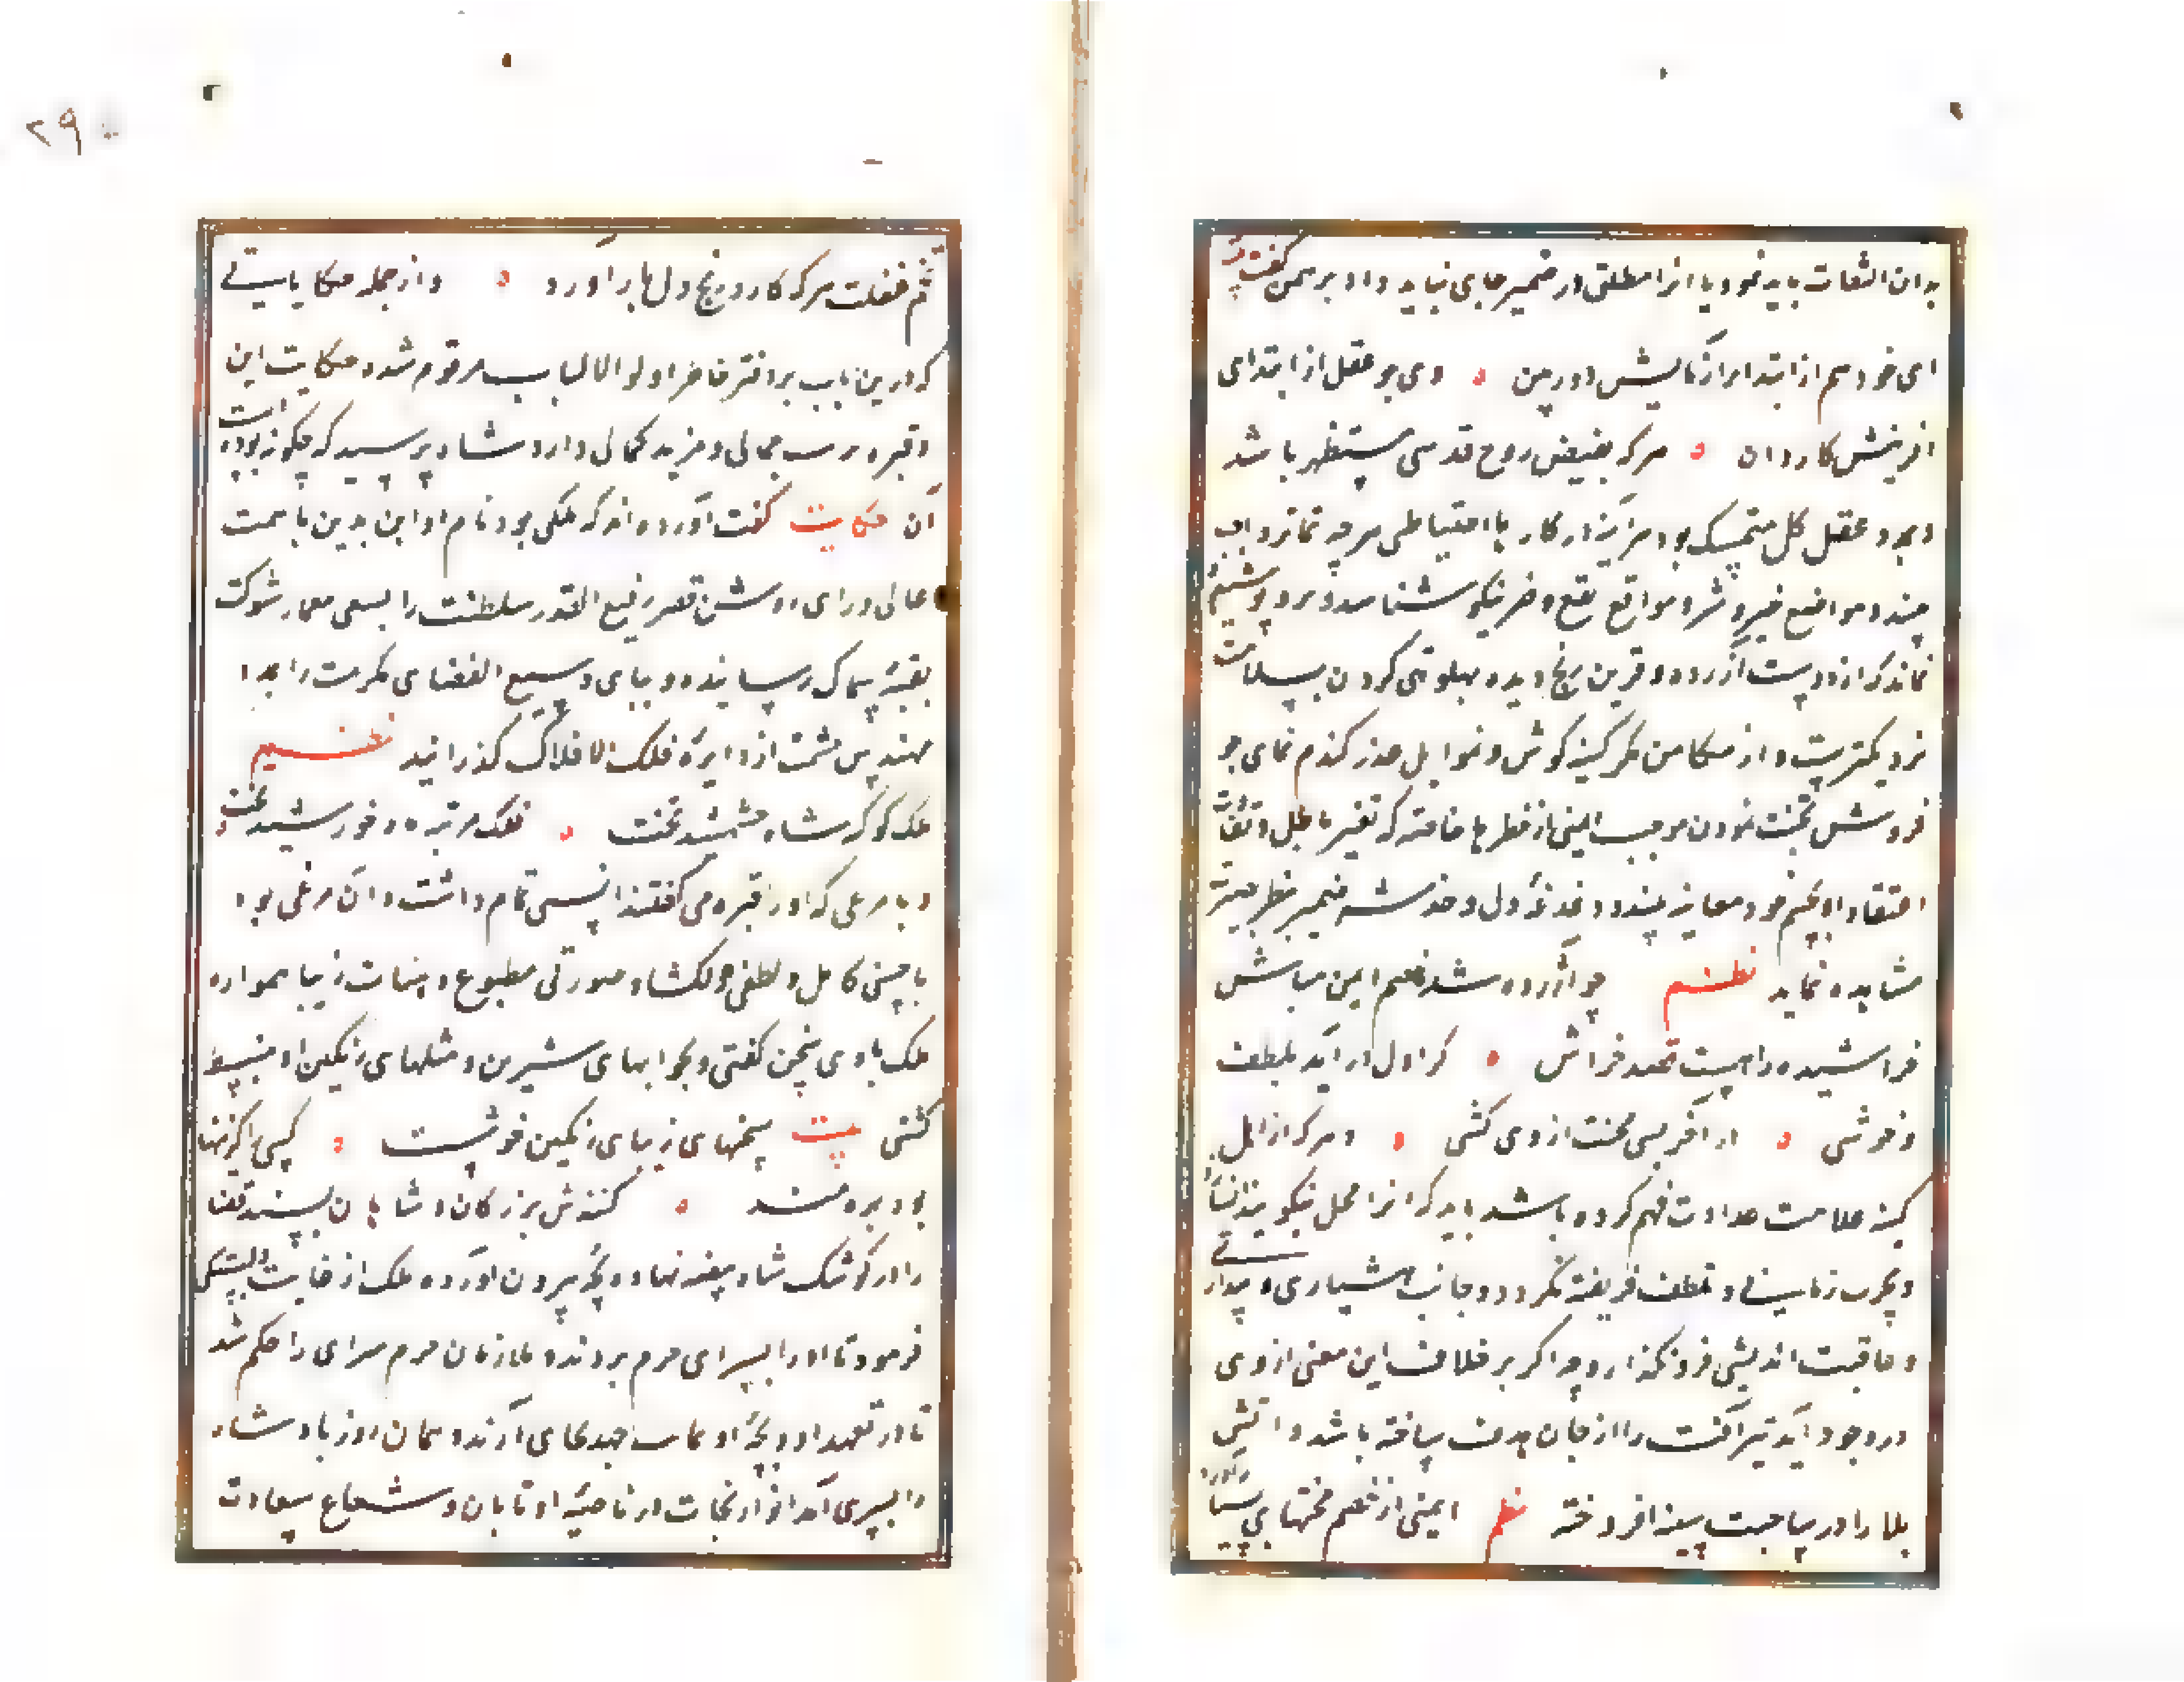 بدان التفات باید نمود یا انرا مطلق در ضمیر جای نباید داد برهمن گفت
ای خرد هم از ابتدا براز کایش اور من وی چو عقل از ابتدای
افرینش کاردان هرکه بفیض روح قدسی مستظهر باشد
و بمدد عقل کل متمسک بود هراینه در کارها احتیاطی هرچه تمامتر واجب
بیند و مواضع خیر و شر و مواقع نفع و ضر نیکو شناسد و برو پوشیده
نماند که از دوست آزرده و قرین رنج دیده پهلو تهی کردن بسلامت
نزدیکترست و از مکامن مکر کینه کوش و غوایل غدر کندم نمای جو
فروش تجنب نمودن موجب ایمنی از خطرها خاصه که تغیر باطل و تفاوت
اعتقاد او بچشم خود معاینه بیند و دغدغهٔ دل و خدشه ضمیر بنظر بصیرت
مشاهده نماید نظم چو آزرده شد خصم ایمن مباش
خراشیده را هست قصد خراش کر اول در آید بلطف
و خوشی در آخر بسی محنت از وی کشی و هرکه از اهل
کینه علامت عداوت فهم کرده باشد باید که انرا محل نیکو ننهد
و بچرب زبانی و تلطف فریفته نکردد و جانب هشیاری و بیداری
و عاقبت اندیشی فرو نکذارد چه اکر بر خلاف این معنی از وی
در وجود آید تیر آفت را از جان هدف ساخته باشد و آتش
بلا را در ساحت سینه افروخته نظم ایمنی از خصم محنتهای بسیار آورد
تخم غفلت هرکه کارد رنج دل بار آورد و از جمله حکایاتی
که درین باب بر دفتر خاطر اولوالالباب مرقوم شده حکایت ابن
و قبره برسب جمالی و مزید کمالی دارد شاه پرسید که چکونه بوده است
آن حکایت کفت آورده اند که ملکی بود نام او ابن مدین با همت
عالی و رای روشن قصر رفیع القدر سلطنت را بسعی معمار شوکت
بقبهٔ سماک رسانیده و بنای وسیع الفضای مکرمت را بمدد
مهندس همت از دایرهٔ فلک الافلاک کذرانید نظم
ملک کوکبه شاه جمشید تخت فلک مرتبه و خورشید بخت
و با مرغی که او را قبره می کفتند انسی تمام داشت و آن مرغی بود
با حسی کامل و نطقی دلکشا و صورتی مطبوع و هیات زیبا همواره
ملک با وی سخن کفتی و بجوابهای شیرین و مثلهای رنکین او منبسط
کشتی بیت سخنهای زیبای رنکین خوشست کسی را کزینها
بود بهره مند کنندش بزرکان و شاهان پسند قضا
را در کوشک شاه بیضه نهاد و بچه بیرون آورده ملک از غایت دلبستکی
فرمود تا او را بسرای حرم بردند و ملازمان حرم سرای را حکم شد
تا در تعهد او و بچهٔ او غایت جهد بجای آرند و همان روز پادشاه
را پسری آمد انوار نجابت از ناصیهٔ او تابان و شعاع سعادت